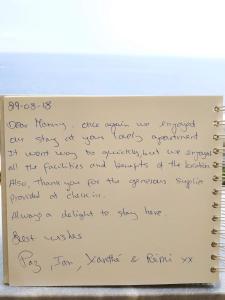 29-03-18
Dear Manny, once again we enjoyed
our stay at your lovely apartment
It went way to quickly, but we enjoyed
all the facilities and benefits of the location
Also, thank you for the generous supplies
provided at check in.
Always a delight to stay here.
Best wishes
Paz, Jan, Xanthé & Rémi xx